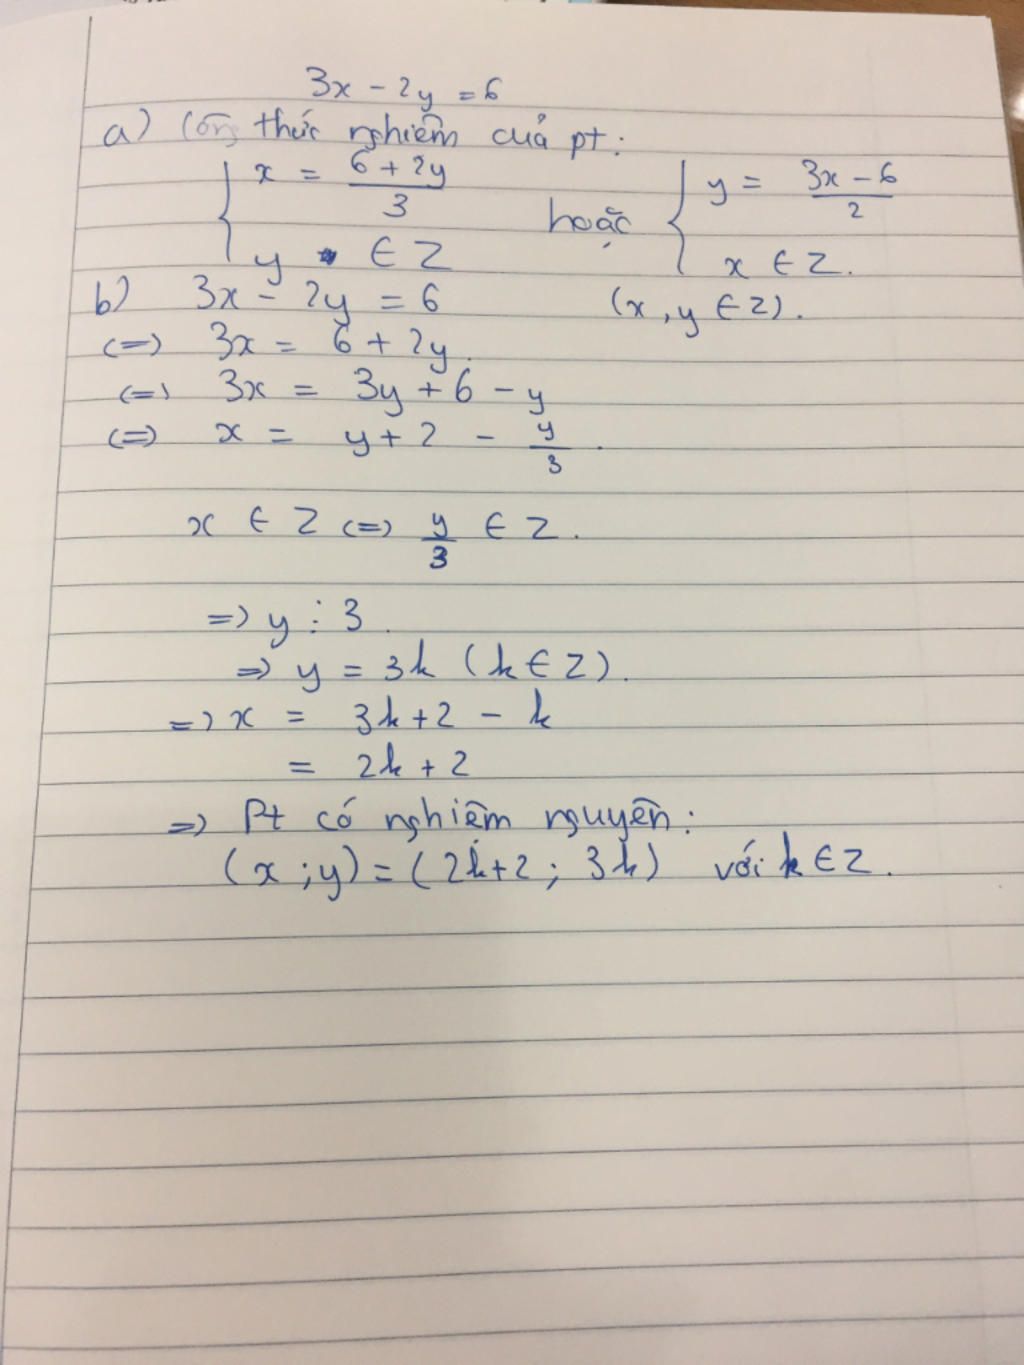 3x - 2y = 6
a) Công thức nghiệm của pt:
x = (6 + 2y)/3 hoặc y = (3x - 6)/2
y ∈ Z x ∈ Z.
b) 3x - 2y = 6 (x, y ∈ Z).
(=) 3x = 6 + 2y.
(=) 3x = 3y + 6 - y
(=) x = y + 2 - y/3.
x ∈ Z (=) y/3 ∈ Z.
=) y ⋮ 3.
=) y = 3k (k ∈ Z).
=) x = 3k + 2 - k
= 2k + 2
=) Pt có nghiệm nguyên:
(x ; y) = (2k+2 ; 3k) với k ∈ Z.